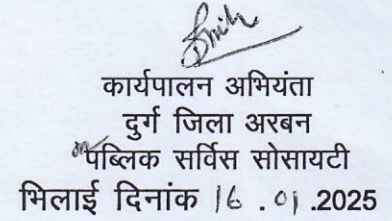 कार्यपालन अभियंता
दुर्ग जिला अरबन
पब्लिक सर्विस सोसायटी
भिलाई दिनांक 16 .01 .2025